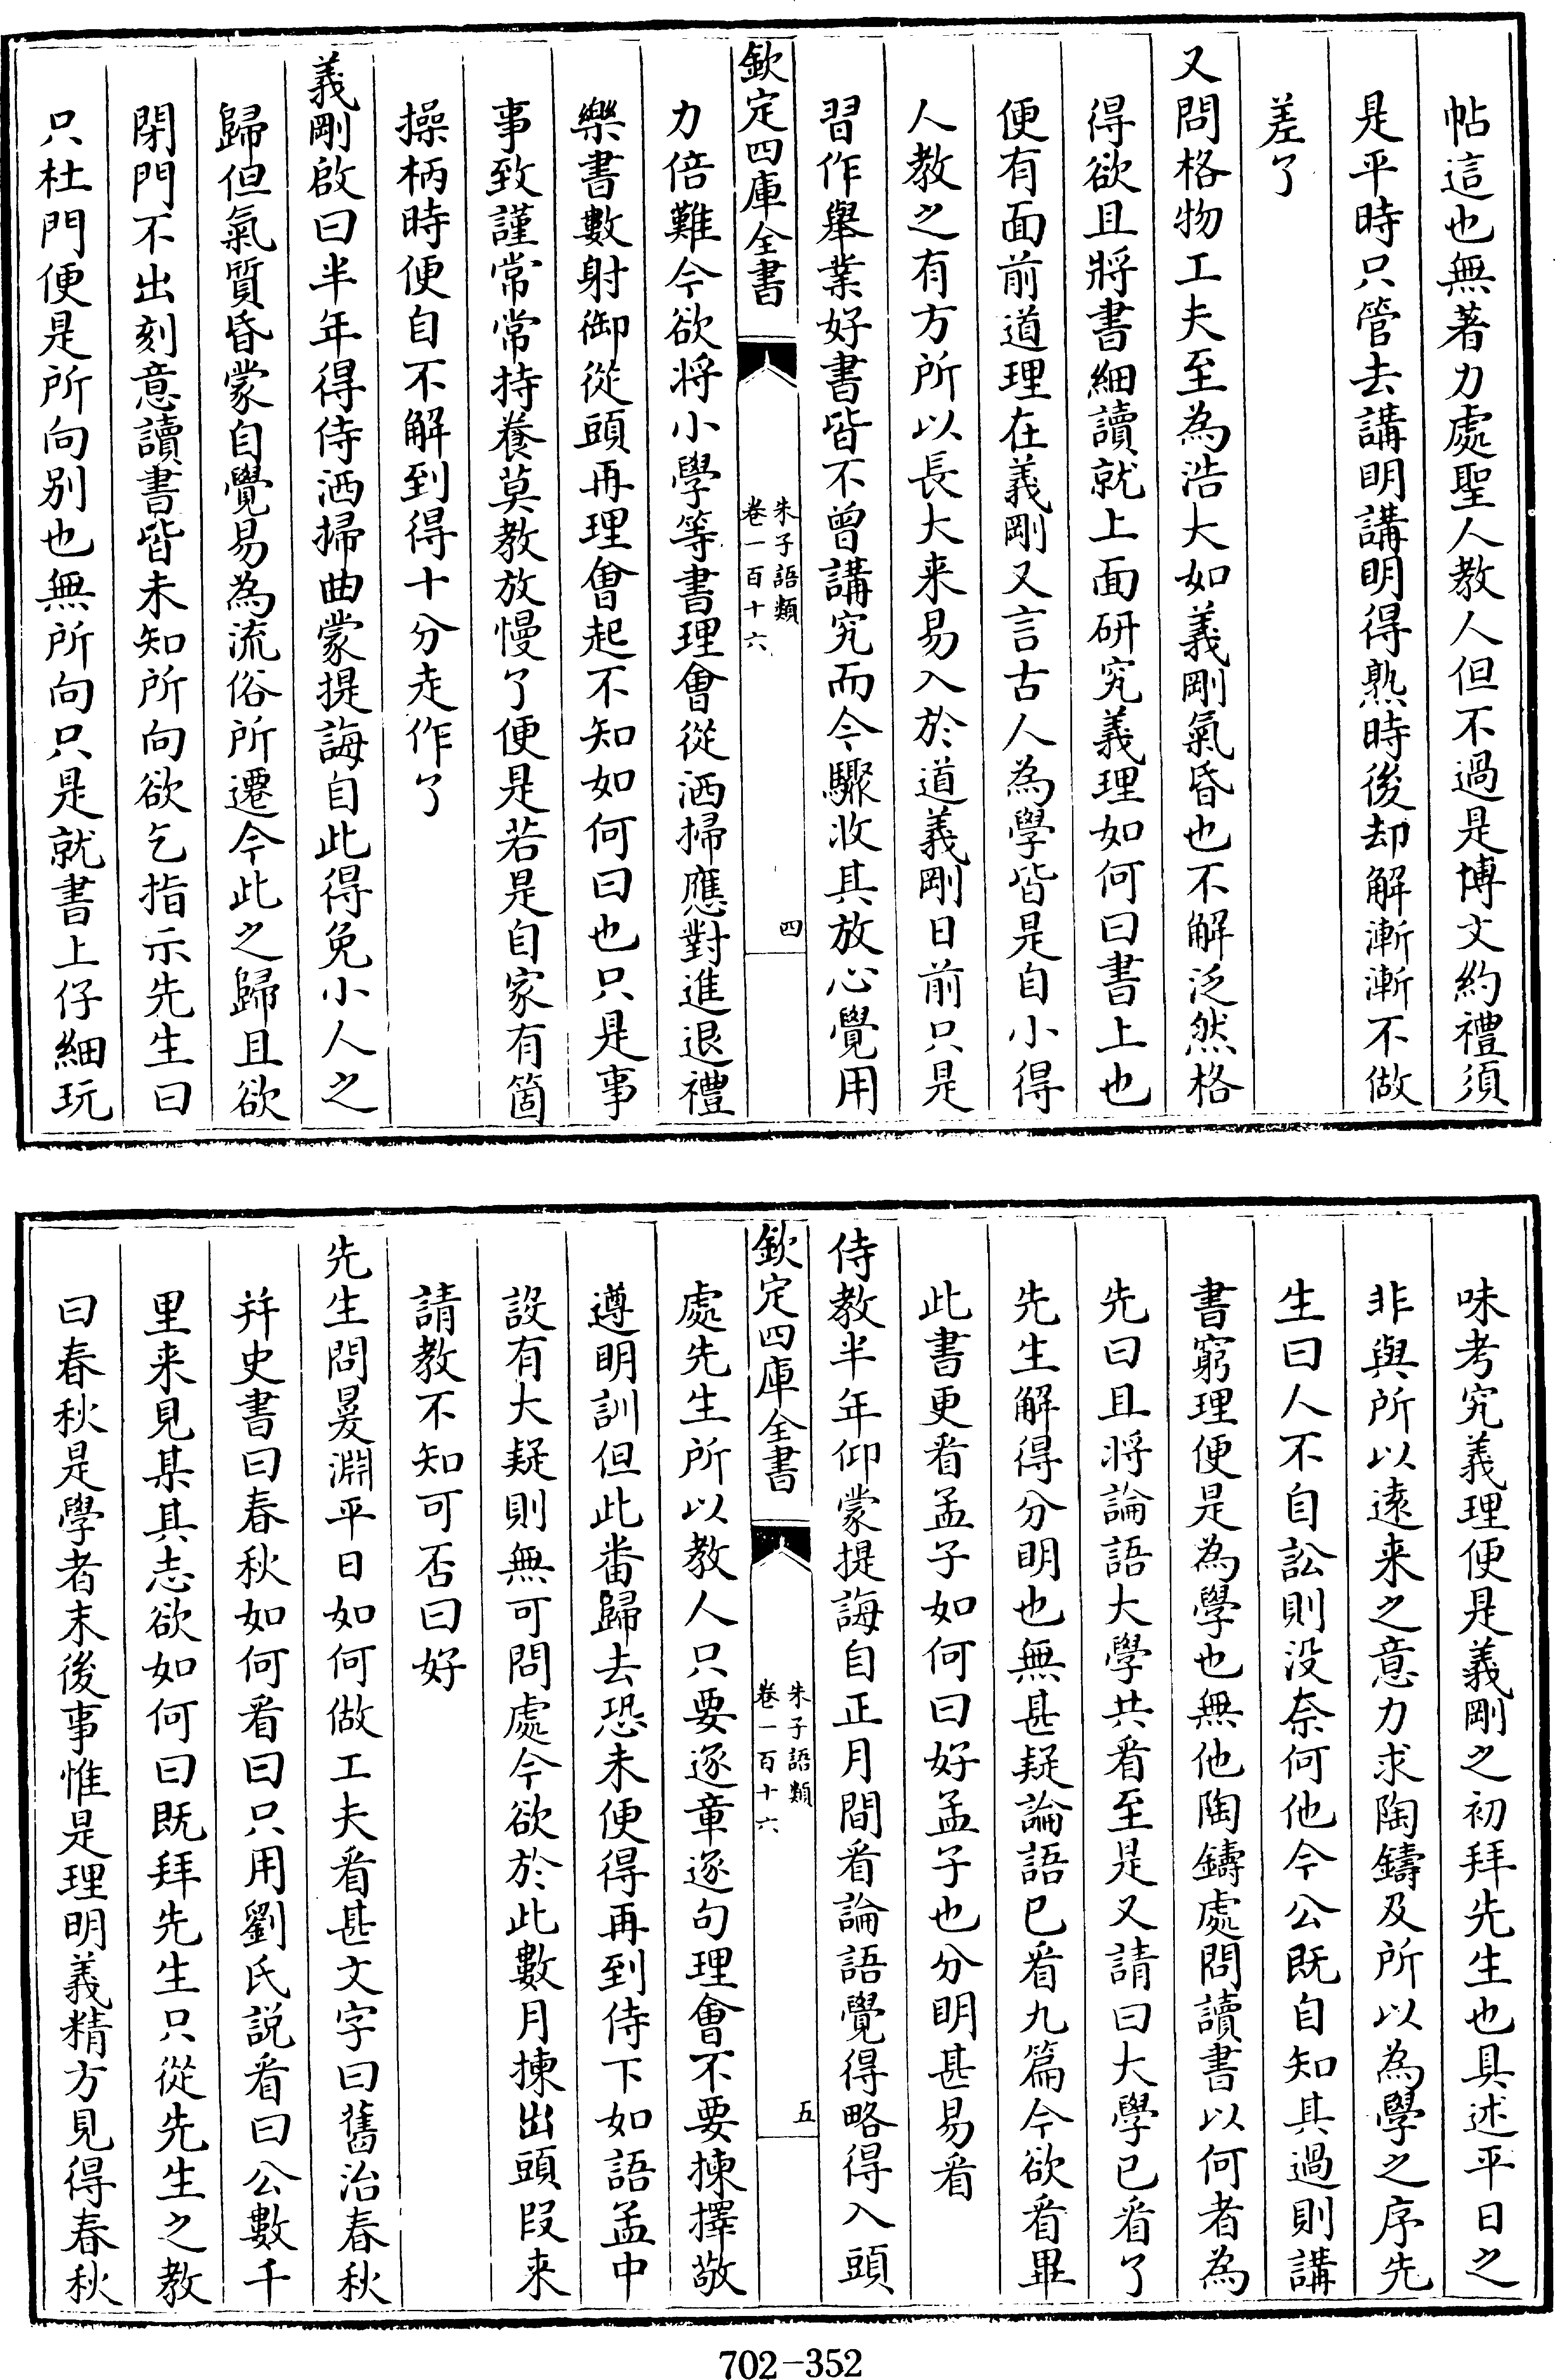 帖這也無著力處聖人教人但不過是博文約禮須
是平時只管去講明講明得熟時後却解漸漸不做
差了
又問格物工夫至為浩大如義剛氣昏也不解泛然格
得欲且將書細讀就上面研究義理如何曰書上也
便有面前道理在義剛又言古人為學皆是自小得
人教之有方所以長大来易入於道義剛日前只是
習作舉業好書皆不曾講究而今驟收其放心覺用
欽定四庫全書
朱子語類
卷一百十六
四
力倍難今欲将小學等書理會從洒掃應對進退禮
樂書數射御從頭再理會起不知如何曰也只是事
事致謹常常持養莫教放慢了便是若是自家有箇
操柄時便自不解到得十分走作了
義剛啟曰半年得侍洒掃曲蒙提誨自此得免小人之
歸但氣質昏蒙自覺易為流俗所遷今此之歸且欲
閉門不出刻意讀書皆未知所向欲乞指示先生曰
只杜門便是所向别也無所向只是就書上仔細玩
味考究義理便是義剛之初拜先生也具述平日之
非與所以遠来之意力求陶鑄及所以為學之序先
生曰人不自訟則没奈何他今公既自知其過則講
書窮理便是為學也無他陶鑄處問讀書以何者為
先曰且將論語大學共㸔至是又請曰大學已㸔了
先生解得分明也無甚疑論語已㸔九篇今欲㸔畢
此書更㸔孟子如何曰好孟子也分明甚易㸔
侍教半年仰蒙提誨自正月間㸔論語覺得略得入頭
欽定四庫全書
朱子語類
卷一百十六
五
處先生所以教人只要逐章逐句理會不要揀擇敬
遵明訓但此番歸去恐未便得再到侍下如語孟中
設有大疑則無可問處今欲於此數月揀出頭段来
請教不知可否曰好
先生問㬊淵平日如何做工夫㸔甚文字曰舊治春秋
并史書曰春秋如何㸔曰只用劉氏説㸔曰公數千
里来見某其志欲如何曰既拜先生只從先生之教
曰春秋是學者末後事惟是理明義精方見得春秋
702-352